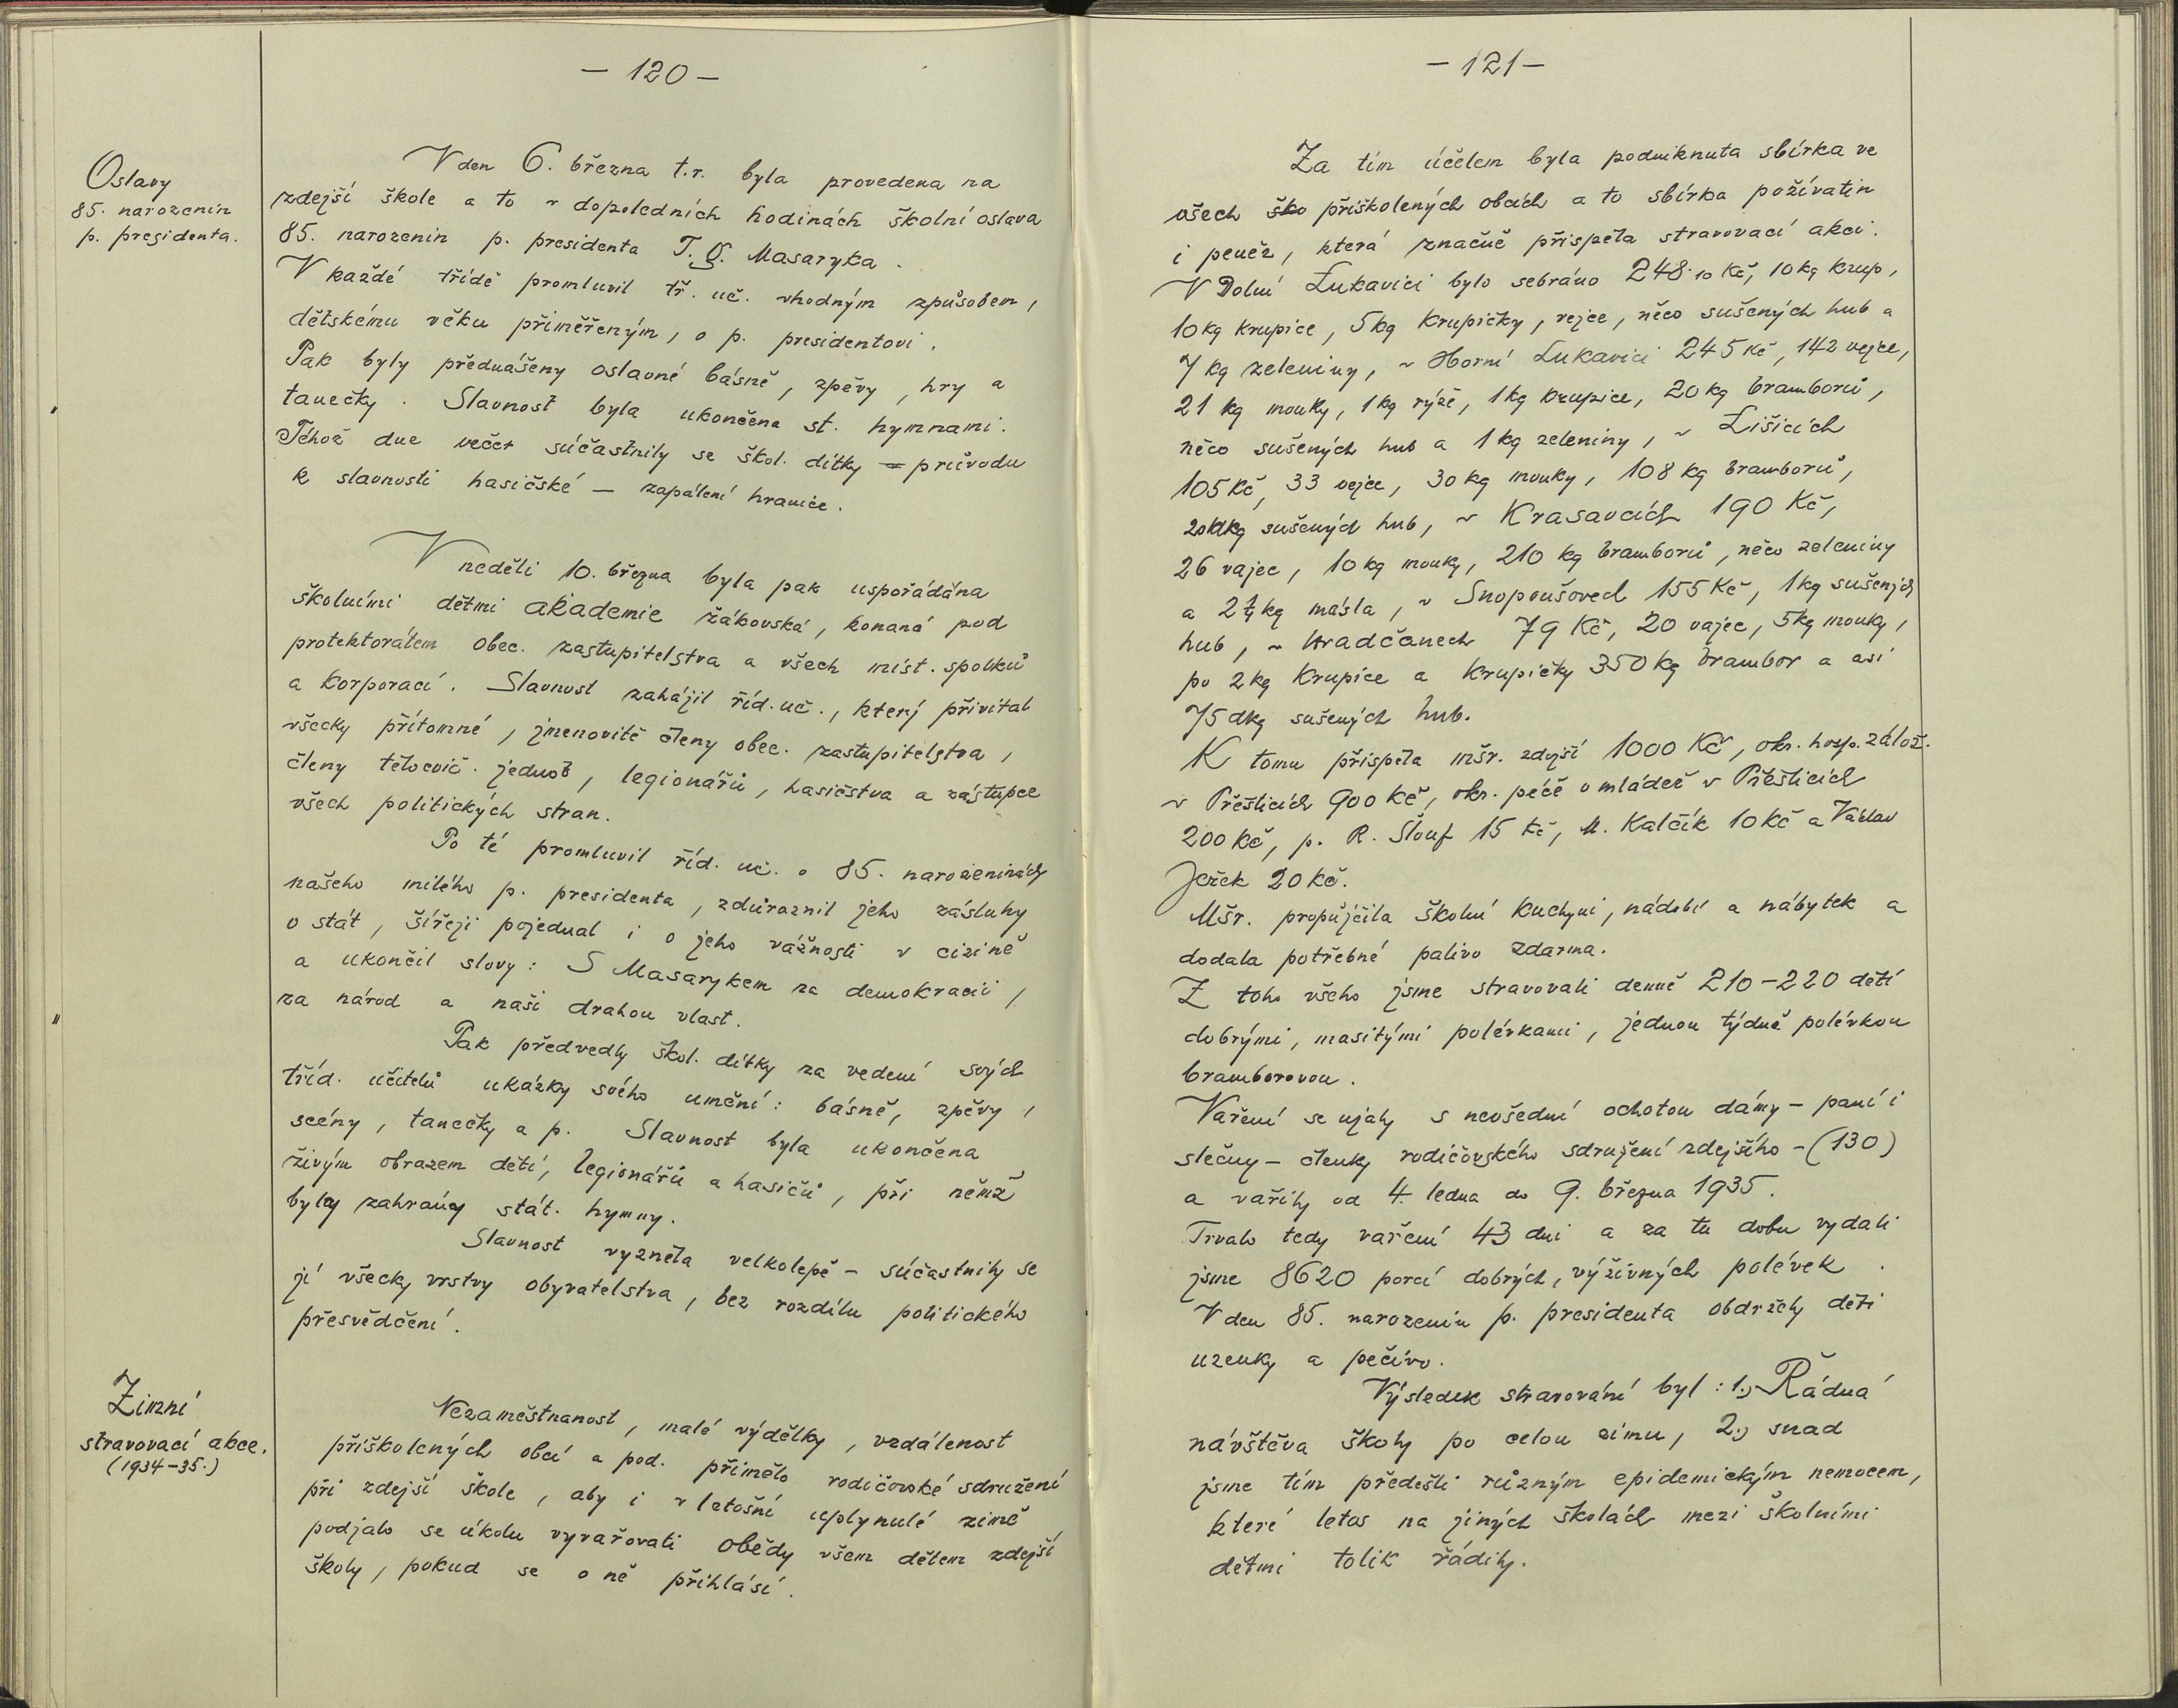 - 120 -
Oslavy
85. narozenin
p. presidenta.
V den 6. března t.r. byla provedena na
zdejší škole a to v dopoledních hodinách školní oslava
85. narozenin p. presidenta T. G. Masaryka.
V každé třídě promluvil tř. uč. vhodným způsobem,
dětskému věku přiměřeným, o p. presidentovi.
Pak byly přednášeny oslavné básně, zpěvy, hry a
tanečky. Slavnost byla ukončena st. hymnami.
Téhož dne večer súčastnily se škol. dítky průvodu
k slavnosti hasičské — zapálení hranice.
V neděli 10. března byla pak uspořádána
školními dětmi akademie žákovská, konaná pod
protektorátem obec. zastupitelstva a všech míst. spolků
a korporací. Slavnost zahájil říd. uč., který přivítal
všecky přítomné, jmenovitě členy obec. zastupitelstva,
členy tělocvič. jednot, legionářů, hasičstva a zástupce
všech politických stran.
Po té promluvil říd. uč. o 85. narozeninách
našeho milého p. presidenta, zdůraznil jeho zásluhy
o stát, šířeji pojednal i o jeho vážnosti v cizině
a ukončil slovy: S Masarykem za demokracii,
za národ a naši drahou vlast.
"
Pak předvedly škol. dítky za vedení svých
tříd. učitelů ukázky svého umění: básně, zpěvy,
scény, tanečky a p. Slavnost byla ukončena
živým obrazem dětí, legionářů a hasičů, při němž
byly zahrány stát. hymny.
Slavnost vyzněla velkolepě – súčastnily se
jí všecky vrstvy obyvatelstva, bez rozdílu politického
přesvědčení.
Zimní
stravovací akce.
(1934-35.)
Nezaměstnanost, malé výdělky, vzdálenost
přiškolených obcí a pod. přimělo rodičovské sdružení
při zdejší škole, aby i v letošní uplynulé zimě
podjalo se úkolu vyvařovati obědy všem dětem zdejší
školy, pokud se o ně přihlásí.
- 121 -
Za tím účelem byla podniknuta sbírka ve
všech ško přiškolených obcích a to sbírka požívatin
i peněz, která značně přispěla stravovací akci.
V Dolní Lukavici bylo sebráno 248.10 Kč, 10 kg krup,
10 kg krupice, 5 kg krupičky, vejce, něco sušených hub a
7 kg zeleniny, v Horní Lukavici 245 Kč, 142 vejce,
21 kg mouky, 1 kg rýže, 1 kg krupice, 20 kg bramborů,
něco sušených hub a 1 kg zeleniny, v Lišicích
105 Kč, 33 vejce, 30 kg mouky, 108 kg bramborů,
20 dkg sušených hub, v Krasavcích 190 Kč,
26 vajec, 10 kg mouky, 210 kg bramborů, něco zeleniny
a 2¼ kg másla, v Snopoušovech 155 Kč, 1 kg sušených
hub, v Hradčanech 79 Kč, 20 vajec, 5 kg mouky,
po 2 kg krupice a krupičky 350 kg brambor a asi
75 dkg sušených hub.
K tomu přispěla mšr. zdejší 1000 Kč, okr. hosp. zálož.
v Přešticích 900 Kč, okr. péče o mládež v Přešticích
200 Kč, p. R. Šlouf 15 Kč, M. Kalčík 10 Kč a Václav
Ježek 20 Kč.
Mšr. propůjčila školní kuchyni, nádobí a nábytek a
dodala potřebné palivo zdarma.
Z toho všeho jsme stravovali denně 210-220 dětí
dobrými, masitými polévkami, jednou týdně polévkou
bramborovou.
Vaření se ujaly s nevšední ochotou dámy – paní i
slečny – členky rodičovského sdružení zdejšího – (130)
a vařily od 4. ledna do 9. března 1935.
Trvalo tedy vaření 43 dni a za tu dobu vydali
jsme 8620 porcí dobrých, výživných polévek.
V den 85. narozenin p. presidenta obdržely děti
uzenky a pečivo.
Výsledek stravování byl: 1.) Řádná
návštěva školy po celou zimu, 2.) snad
jsme tím předešli různým epidemickým nemocem,
které letos na jiných školách mezi školními
dětmi tolik řádily.